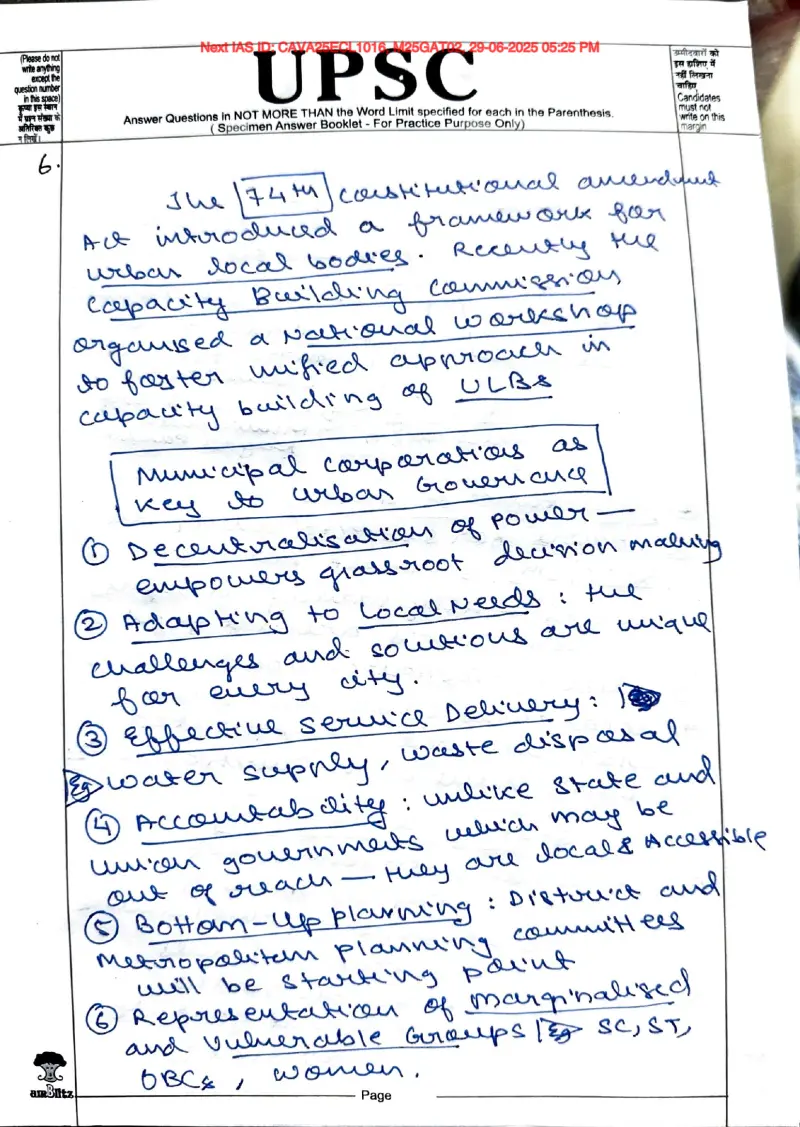 Next IAS ID: CAVA25ECL1016_M25GAT02_29-06-2025 05:25 PM
(Please do not
write anything
except the
question number
in this space)
कृपया इस स्थान
में प्रश्न संख्या के
अतिरिक्त कुछ
न लिखें।
UPSC
Answer Questions in NOT MORE THAN the Word Limit specified for each in the Parenthesis.
( Specimen Answer Booklet - For Practice Purpose Only)
उम्मीदवारों को
इस हाशिए में
नहीं लिखना
चाहिए
Candidates
must not
write on this
margin
6.
The 74th constitutional amendment
Act introduced a framework for
urban local bodies. Recently the
Capacity Building Commission
organised a National workshop
to foster unified approach in
capacity building of ULBs
Municipal corporations as
key to urban Governance
① Decentralisation of power —
empowers grassroot decision making
② Adapting to Local Needs : the
challenges and solutions are unique
for every city.
③ Effective Service Delivery :
Eg water supply, waste disposal
④ Accountability : unlike state and
union governments which may be
out of reach — they are local & Accessible
⑤ Bottom-Up planning : District and
Metropolitan planning committees
will be starting point
⑥ Representation of marginalised
and Vulnerable Groups Eg SC, ST,
OBCs, women.
Page